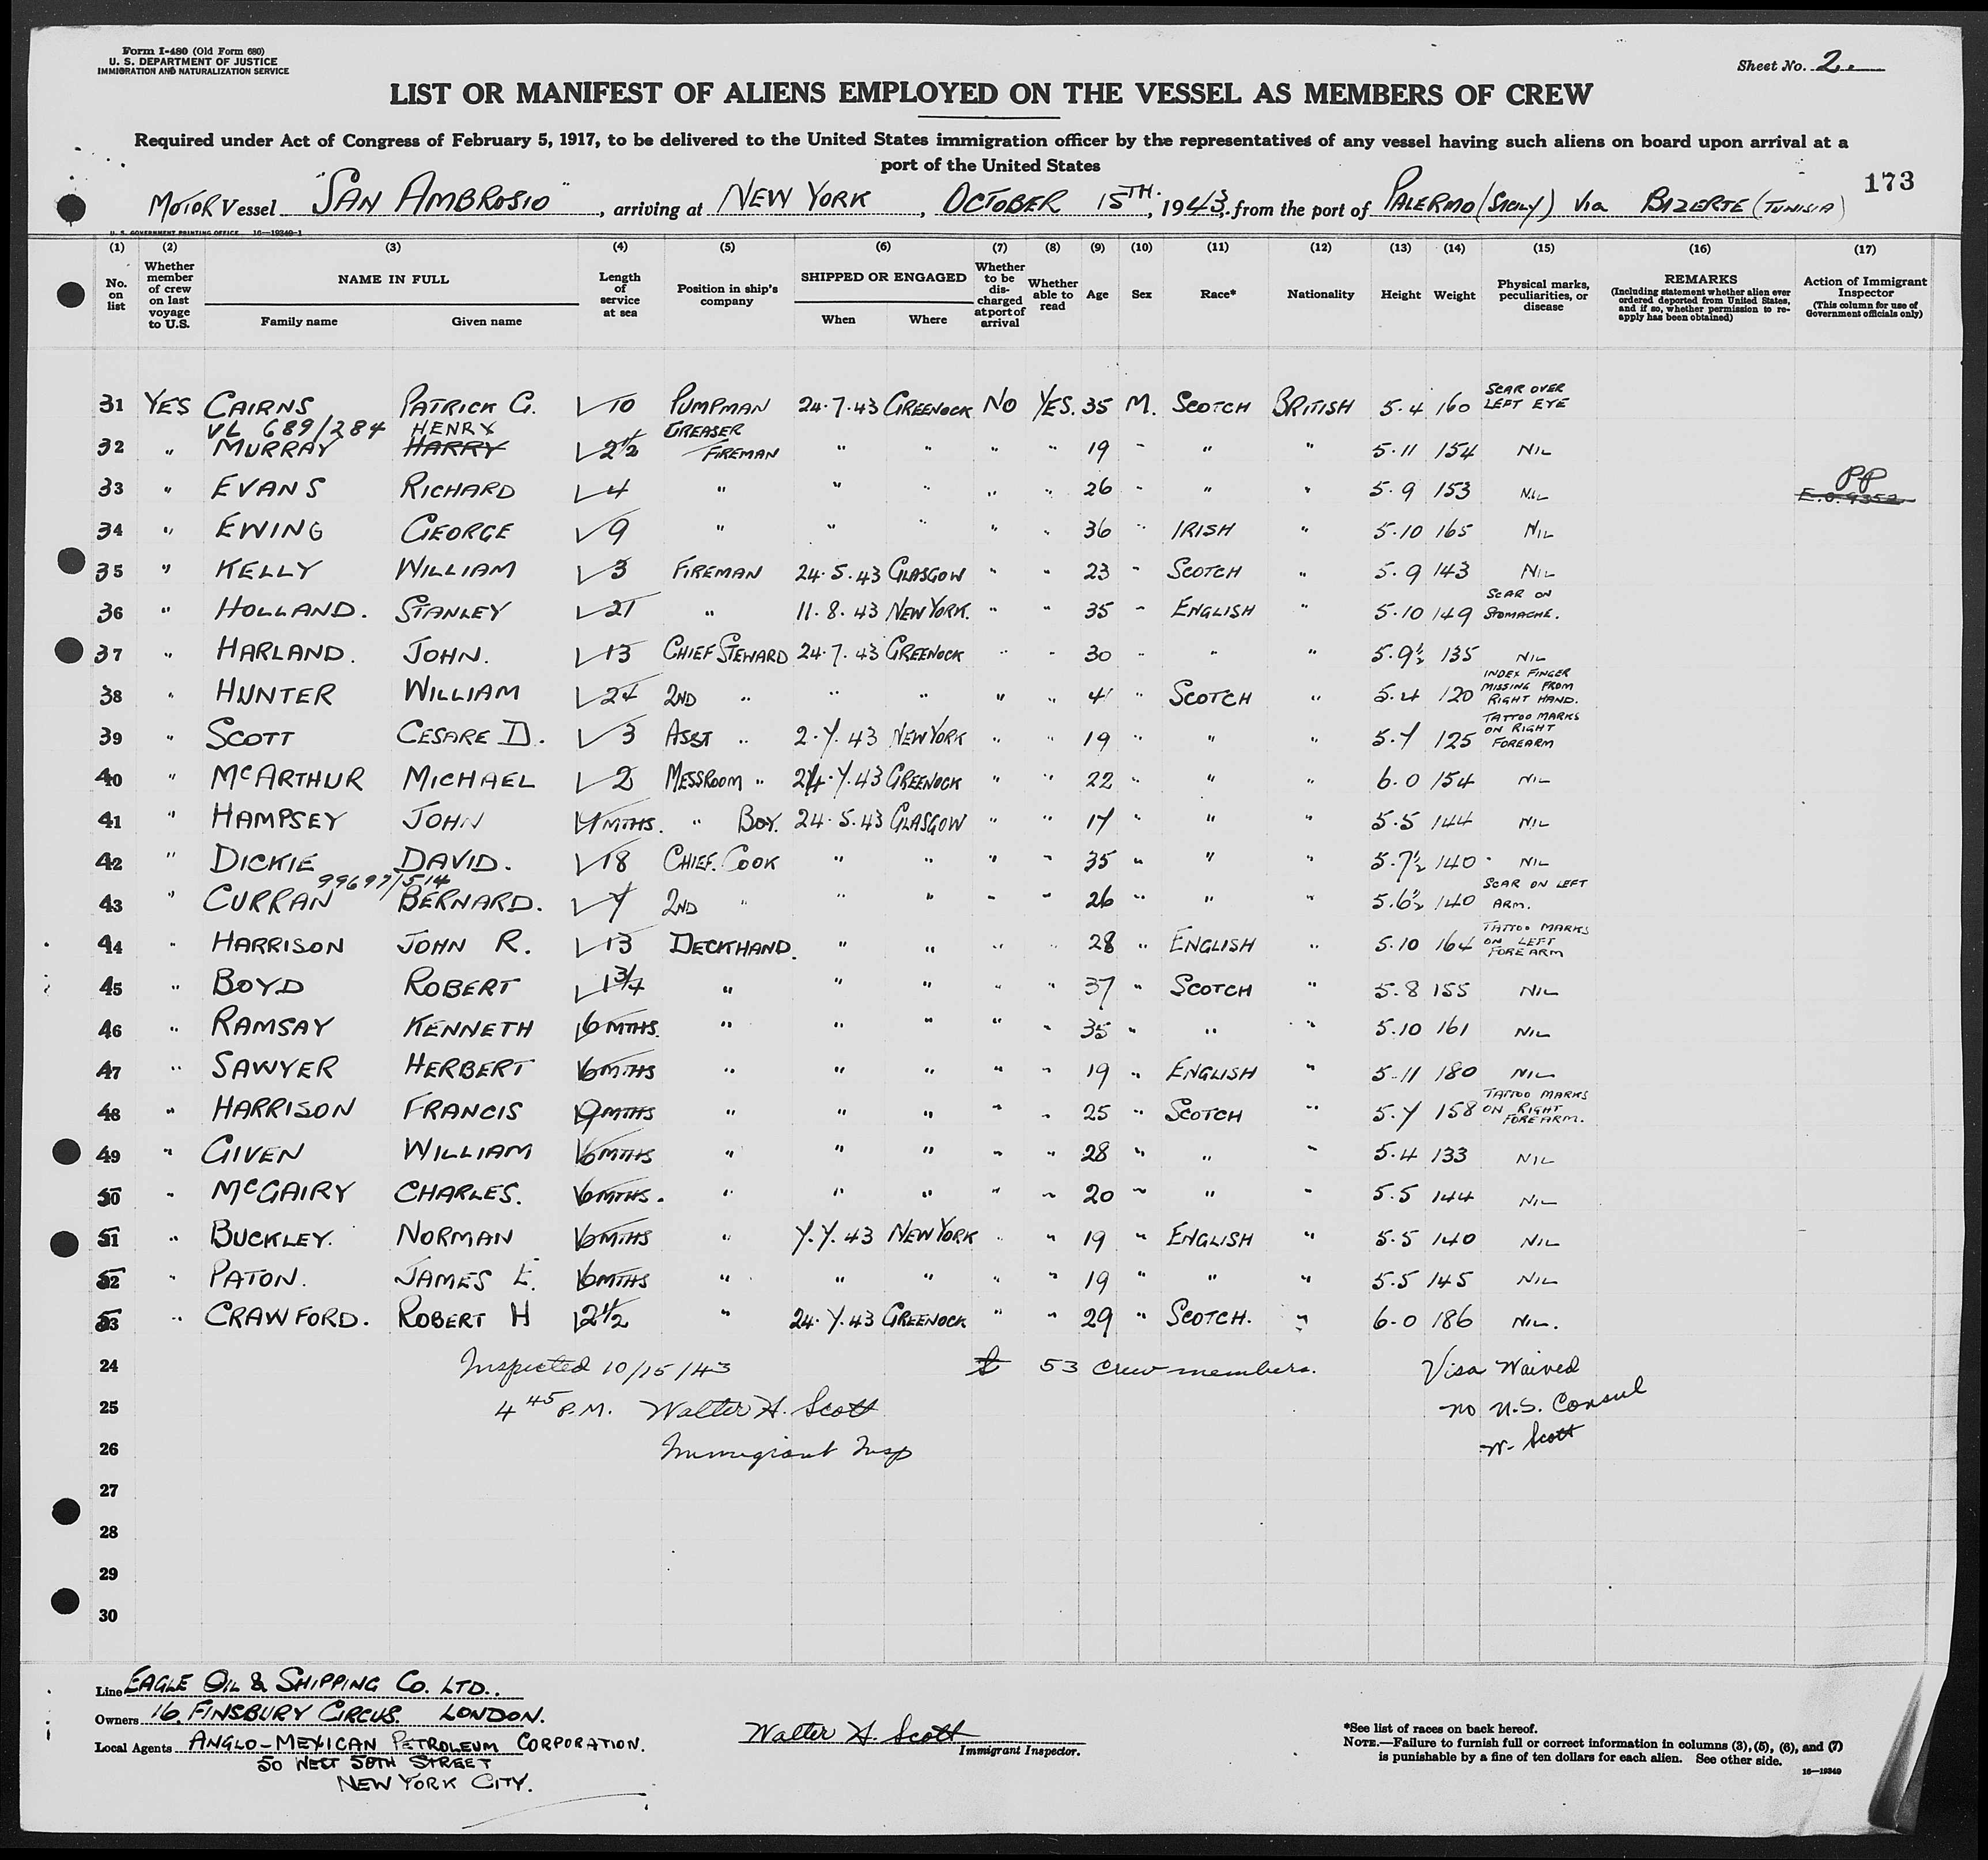 Form I-480 (Old Form 680)
U. S. DEPARTMENT OF JUSTICE
IMMIGRATION AND NATURALIZATION SERVICE
Sheet No. 2.
LIST OR MANIFEST OF ALIENS EMPLOYED ON THE VESSEL AS MEMBERS OF CREW
Required under Act of Congress of February 5, 1917, to be delivered to the United States immigration officer by the representatives of any vessel having such aliens on board upon arrival at a
port of the United States
173
MOTOR Vessel "SAN AMBROSIO", arriving at NEW YORK, OCTOBER 15TH., 1943. from the port of PALERMO (SICILY) Via BIZERTE (TUNISIA)
U. S. GOVERNMENT PRINTING OFFICE 16—19340-1
(1) (2) (3) (4) (5) (6) (7) (8) (9) (10) (11) (12) (13) (14) (15) (16) (17)
No. on list
Whether member of crew on last voyage to U.S.
NAME IN FULL
Family name Given name
Length of service at sea
Position in ship's company
SHIPPED OR ENGAGED
When Where
Whether to be discharged at port of arrival
Whether able to read
Age
Sex
Race*
Nationality
Height
Weight
Physical marks, peculiarities, or disease
REMARKS
(Including statement whether alien ever ordered deported from United States, and if so, whether permission to re-apply has been obtained)
Action of Immigrant Inspector
(This column for use of Government officials only)
31 YES CAIRNS PATRICK G. 10 PUMPMAN 24·7·43 GREENOCK NO YES. 35 M. SCOTCH BRITISH 5·4 160 SCAR OVER LEFT EYE
VL 689/284 HENRY GREASER
32 " MURRAY HARRY 2½ FIREMAN " " " " 19 " " " 5·11 154 NIL
33 " EVANS RICHARD 4 " " " " " 26 " " " 5·9 153 NIL PP E.O.9352
34 " EWING GEORGE 9 " " " " " 36 " IRISH " 5·10 165 NIL
35 " KELLY WILLIAM 3 FIREMAN 24·5·43 GLASGOW " " 23 " SCOTCH " 5·9 143 NIL
36 " HOLLAND. STANLEY 21 " 11·8·43 NEW YORK. " " 35 " ENGLISH " 5·10 149 SCAR ON STOMACHE.
37 " HARLAND. JOHN. 13 CHIEF STEWARD 24·7·43 GREENOCK " " 30 " " " 5·9½ 135 NIL
38 " HUNTER WILLIAM 24 2ND " " " " " 41 " SCOTCH " 5·4 120 INDEX FINGER MISSING FROM RIGHT HAND.
39 " SCOTT CESARE D. 3 ASST " 2·7·43 NEW YORK " " 19 " " " 5·7 125 TATTOO MARKS ON RIGHT FOREARM
40 " McARTHUR MICHAEL 2 MESSROOM " 24·7·43 GREENOCK " " 22 " " " 6·0 154 NIL
41 " HAMPSEY JOHN 4 MTHS. " BOY. 24·5·43 GLASGOW " " 17 " " " 5·5 144 NIL
42 " DICKIE DAVID. 18 CHIEF. COOK " " " " 35 " " " 5·7½ 140 NIL
99697/514
43 " CURRAN BERNARD. 7 2ND " " " " " 26 " " " 5·6½ 140 SCAR ON LEFT ARM.
44 " HARRISON JOHN R. 13 DECKHAND. " " " " 28 " ENGLISH " 5·10 164 TATTOO MARKS ON LEFT FOREARM
45 " BOYD ROBERT 1¾ " " " " " 37 " SCOTCH " 5·8 155 NIL
46 " RAMSAY KENNETH 6 MTHS. " " " " " 35 " " " 5·10 161 NIL
47 " SAWYER HERBERT 6 MTHS " " " " " 19 " ENGLISH " 5·11 180 NIL
48 " HARRISON FRANCIS 9 MTHS " " " " " 25 " SCOTCH " 5·7 158 TATTOO MARKS ON RIGHT FOREARM.
49 " GIVEN WILLIAM 6 MTHS " " " " " 28 " " " 5·4 133 NIL
50 " McGAIRY CHARLES. 6 MTHS. " " " " " 20 " " " 5·5 144 NIL
51 " BUCKLEY. NORMAN 6 MTHS " 7·7·43 NEW YORK " " 19 " ENGLISH " 5·5 140 NIL
52 " PATON. JAMES E. 6 MTHS " " " " " 19 " " " 5·5 145 NIL
53 " CRAWFORD. ROBERT H 2½ " 24·7·43 GREENOCK " " 29 " SCOTCH. " 6·0 186 NIL.
24 Inspected 10/15/43 53 crew members. Visa Waived
25 4 45 P.M. Walter H. Scott no U.S. Consul
26 Immigrant Insp W. Scott
27
28
29
30
Line EAGLE OIL & SHIPPING CO. LTD..
Owners 16, FINSBURY CIRCUS. LONDON.
Local Agents ANGLO-MEXICAN PETROLEUM CORPORATION.
50 WEST 50TH STREET
NEW YORK CITY.
Walter H. Scott
Immigrant Inspector.
*See list of races on back hereof.
NOTE.—Failure to furnish full or correct information in columns (3), (5), (6), and (7)
is punishable by a fine of ten dollars for each alien. See other side.
16—19340